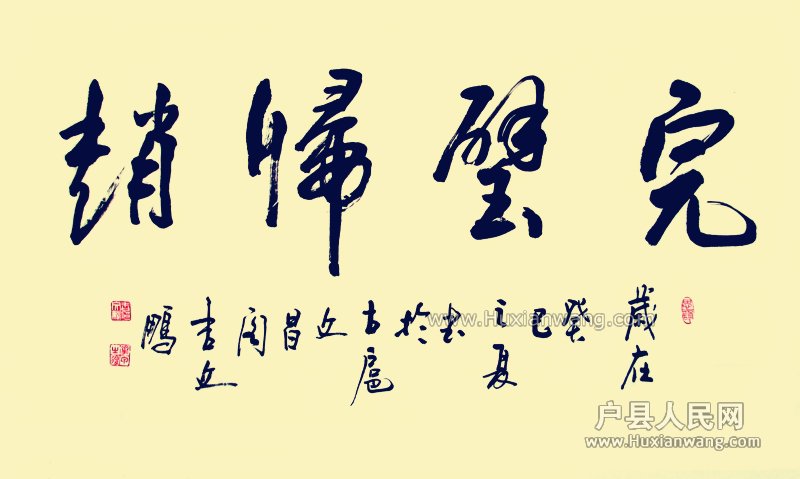 完璧歸趙
歲在
癸
巳
之夏
書
於
古扈
丘
昌
閣
李丘
鵬
www.Huxianwang.com
户县人民网
www.Huxianwang.com